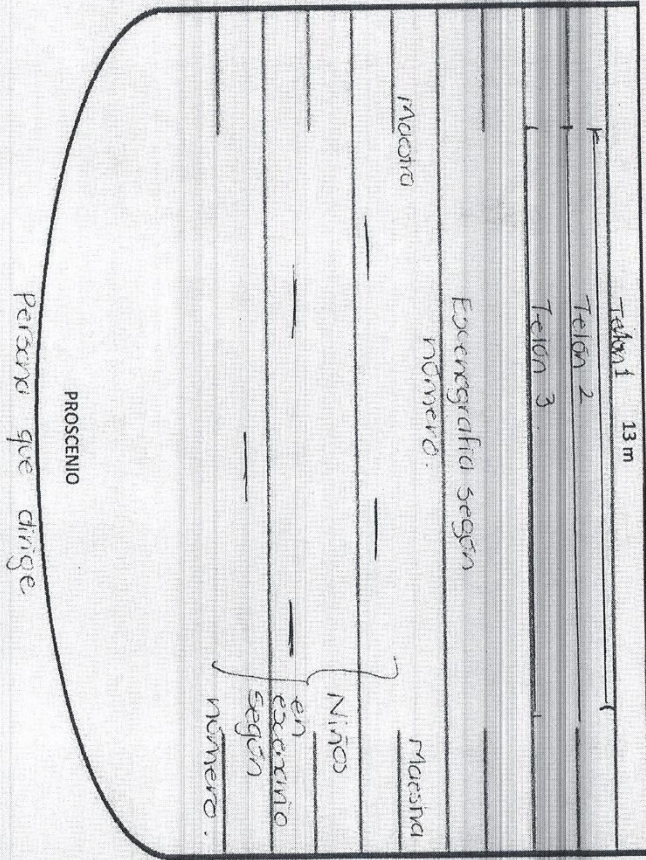 13 m
Telón 1
Telón 2
Telón 3.
Escenografía según
número.
Maestra
Maestra
Niños
en
escenario
según
número.
PROSCENIO
Persona que dirige